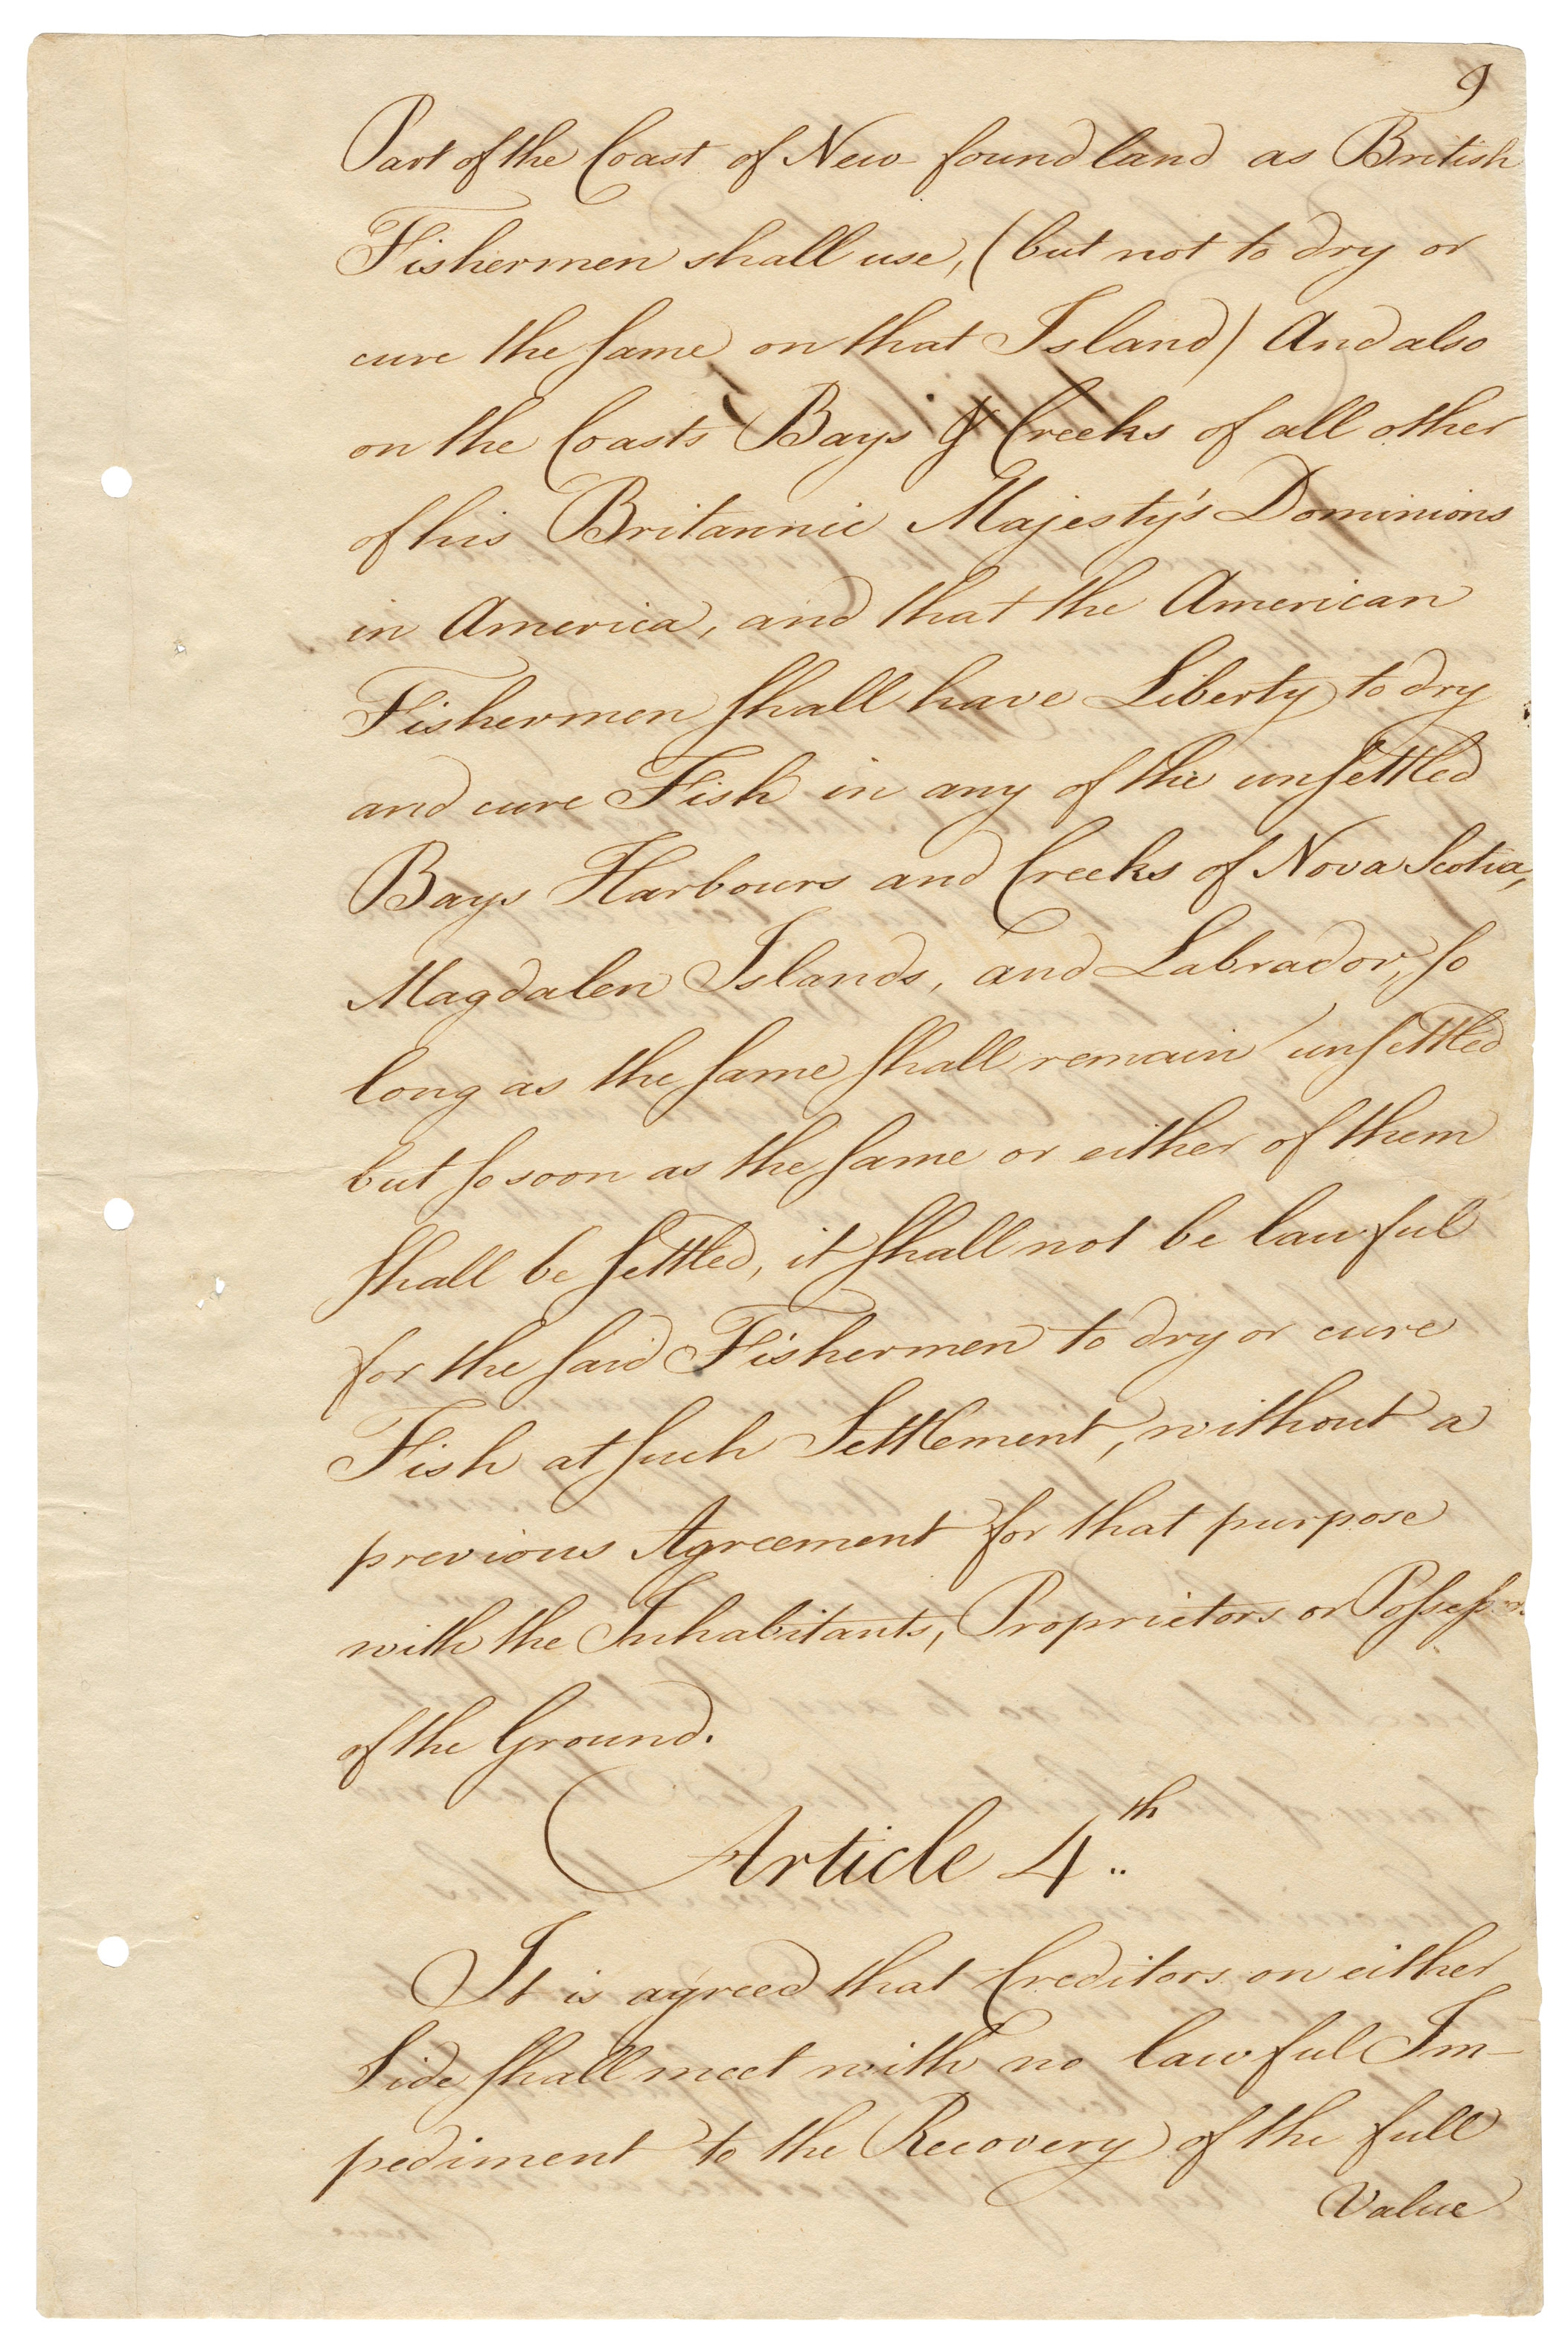 9
Part of the Coast of New foundland as British
Fishermen shall use, (but not to dry or
cure the same on that Island) And also
on the Coasts Bays & Creeks of all other
of his Britannic Majesty's Dominions
in America, and that the American
Fishermen shall have Liberty to dry
and cure Fish in any of the unsettled
Bays Harbours and Creeks of Nova Scotia,
Magdalen Islands, and Labrador, so
long as the same shall remain unsettled
but so soon as the same or either of them
shall be settled, it shall not be lawful
for the said Fishermen to dry or cure
Fish at such Settlement, without a
previous Agreement for that purpose
with the Inhabitants, Proprietors or Possessors
of the Ground.
Article 4th
It is agreed that Creditors on either
Side shall meet with no lawful Im-
pediment to the Recovery of the full
Value